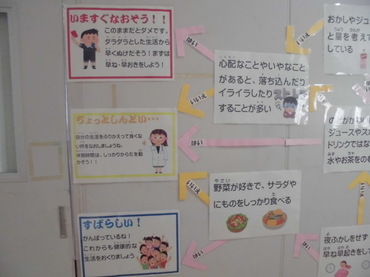 いますぐなおそう！！
このままだとダメです。
ダラダラとした生活から
早くぬけだそう！まずは
早ね・早おきをしよう！
ちょっとしんぱい…
自分の生活をふりかえって良くな
い所をなおしましょうね。
休憩時間は、しっかりからだを動
かそう！！
すばらしい！
がんばっているね！
これからも健康的な
生活をおくりましょう。
はい
いいえ
心配なことやいやなこと
があると、落ち込んだり
イライラしたり
することが多い
はい
いいえ
野菜が好きで、サラダや
にものをしっかり食べる
はい
おかしやジ
と量を考えて
している
ジュースやス
ドリンクではな
水やお茶をの
夜ふかしをせず
早ね早起きをして